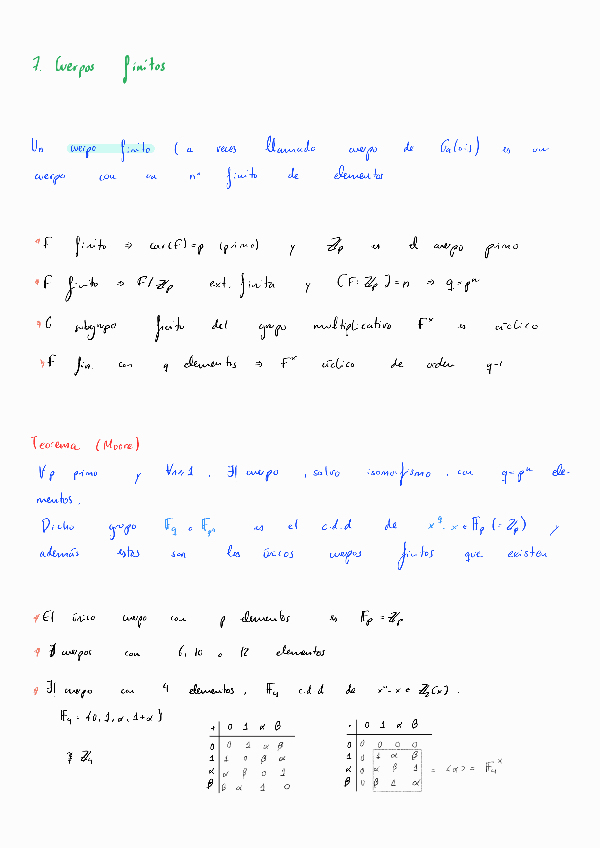 7. Cuerpos finitos
Un cuerpo finito (a veces llamado cuerpo de Galois) es un
cuerpo con un nº finito de elementos
F finito ⇒ car(F)=p (primo) y ℤp es el cuerpo primo
F finito ⇒ F/ℤp ext. finita y [F:ℤp]=n ⇒ q=pⁿ
G subgrupo finito del grupo multiplicativo Fˣ es cíclico
F fin. con q elementos ⇒ Fˣ cíclico de orden q-1
Teorema (Moore)
∀p primo y ∀n≥1, ∃| cuerpo, salvo isomorfismo, con q=pⁿ ele-
mentos.
Dicho grupo 𝔽q o 𝔽pⁿ es el c.d.d de x^q-x ∈ 𝔽p (=ℤp) y
además estos son los únicos cuerpos finitos que existen
El único cuerpo con p elementos es 𝔽p=ℤp
∄ cuerpos con 6, 10 o 12 elementos
∃| cuerpo con 4 elementos, 𝔽4 c.d.d de x⁴-x ∈ ℤ2[x].
𝔽4 = {0, 1, α, 1+α}
≇ ℤ4
+ 0 1 α β
0 0 1 α β
1 1 0 β α
α α β 0 1
β β α 1 0
· 0 1 α β
0 0 0 0 0
1 0 1 α β
α 0 α β 1 = ⟨α⟩ = 𝔽4ˣ
β 0 β 1 α